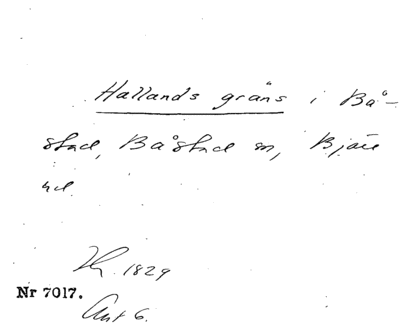 Hallands gräns i Bå-
stad, Båstad sn, Bjäre
hd
1829
Nr 7017.
Ant 6.